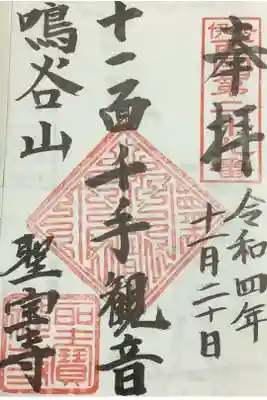 奉拝
令和四年
十一月二十日
十一面千手観音
鳴谷山
聖宝寺